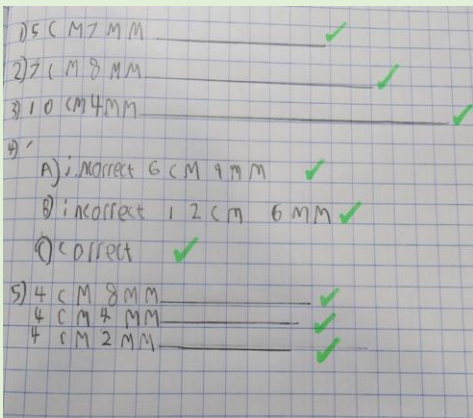 1) 5 CM 7 MM
2) 7 CM 8 MM
3) 10 CM 4 MM
4)
A) incorrect 6 CM 9 MM
B) incorrect 12 CM 6 MM
C) correct
5) 4 CM 8 MM
4 CM 4 MM
4 CM 2 MM